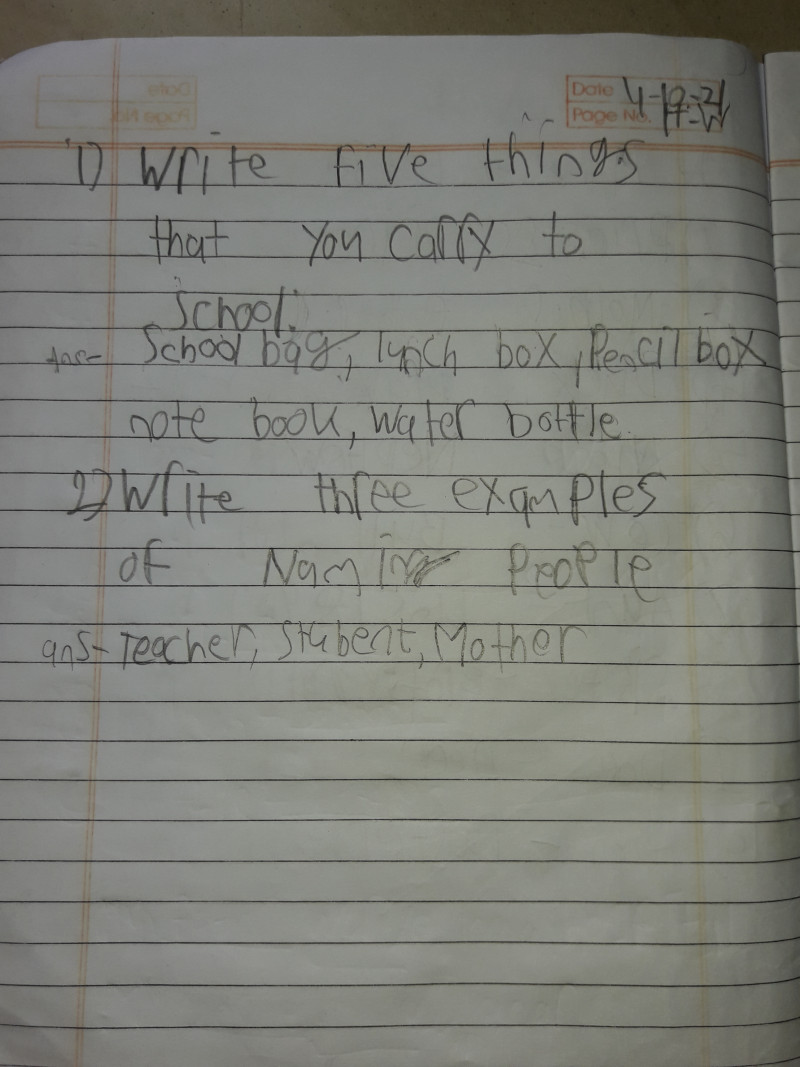 Date 4-10-21
Page No. H-W
1) Write five things
that you carry to
school.
Ans- School bag, lunch box, Pencil box
note book, Water bottle.
2) Write three examples
of Naming People
ans- Teacher, Stubent, Mother